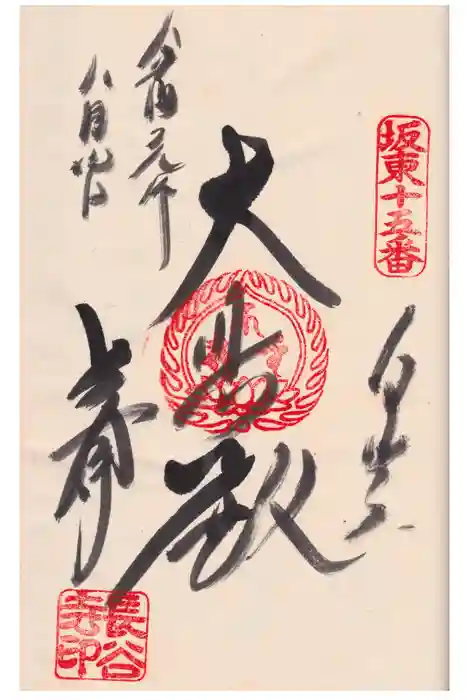 坂東十五番
白岩
大悲殿
令和元年
八月
長谷寺印